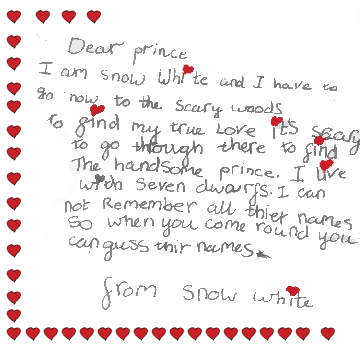 Dear prince
I am snow White and I have to
go now to the scary woods
to find my true Love its scary
to go though there to find
The handsome prince. I live
with Seven dwarfs. I can
not Remember all thier names
So when you come round you
can guss thir names
from snow white